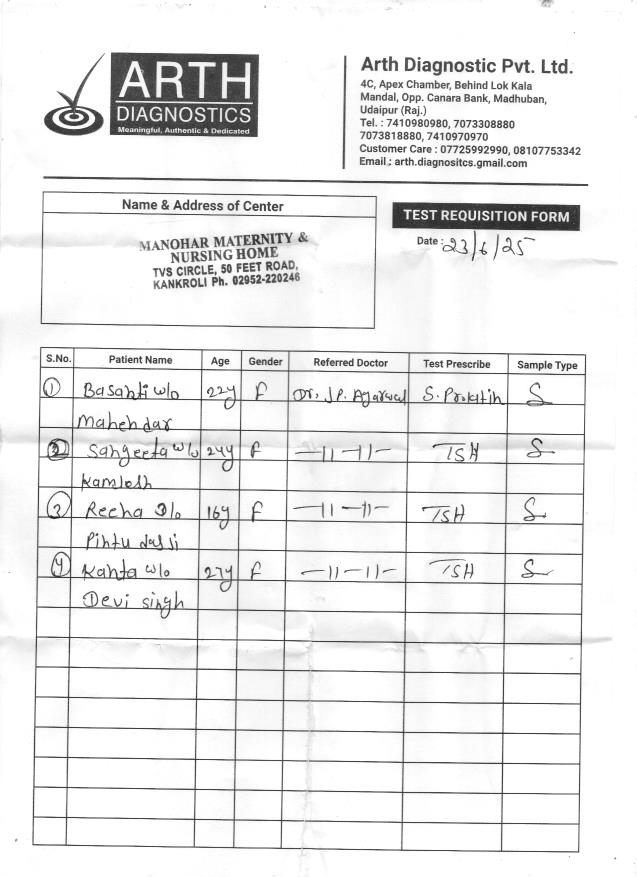 ARTH
DIAGNOSTICS
Meaningful, Authentic & Dedicated
Arth Diagnostic Pvt. Ltd.
4C, Apex Chamber, Behind Lok Kala
Mandal, Opp. Canara Bank, Madhuban,
Udaipur (Raj.)
Tel. : 7410980980, 7073308880
7073818880, 7410970970
Customer Care : 07725992990, 08107753342
Email.: arth.diagnositcs.gmail.com
Name & Address of Center
MANOHAR MATERNITY &
NURSING HOME
TVS CIRCLE, 50 FEET ROAD,
KANKROLI Ph. 02952-220246
TEST REQUISITION FORM
Date : 23/6/25
S.No. Patient Name Age Gender Referred Doctor Test Prescribe Sample Type
1 Basanti w/o 22y F Dr. J.P. Agarwal S. Prolactin S
Mahendar
2 Sangeeta w/o 24y F —11—11— TSH S
Kamlesh
3 Reena D/o 16y F —11—11— TSH S
Pintu
4 Kanta w/o 27y F —11—11— TSH S
Devi singh